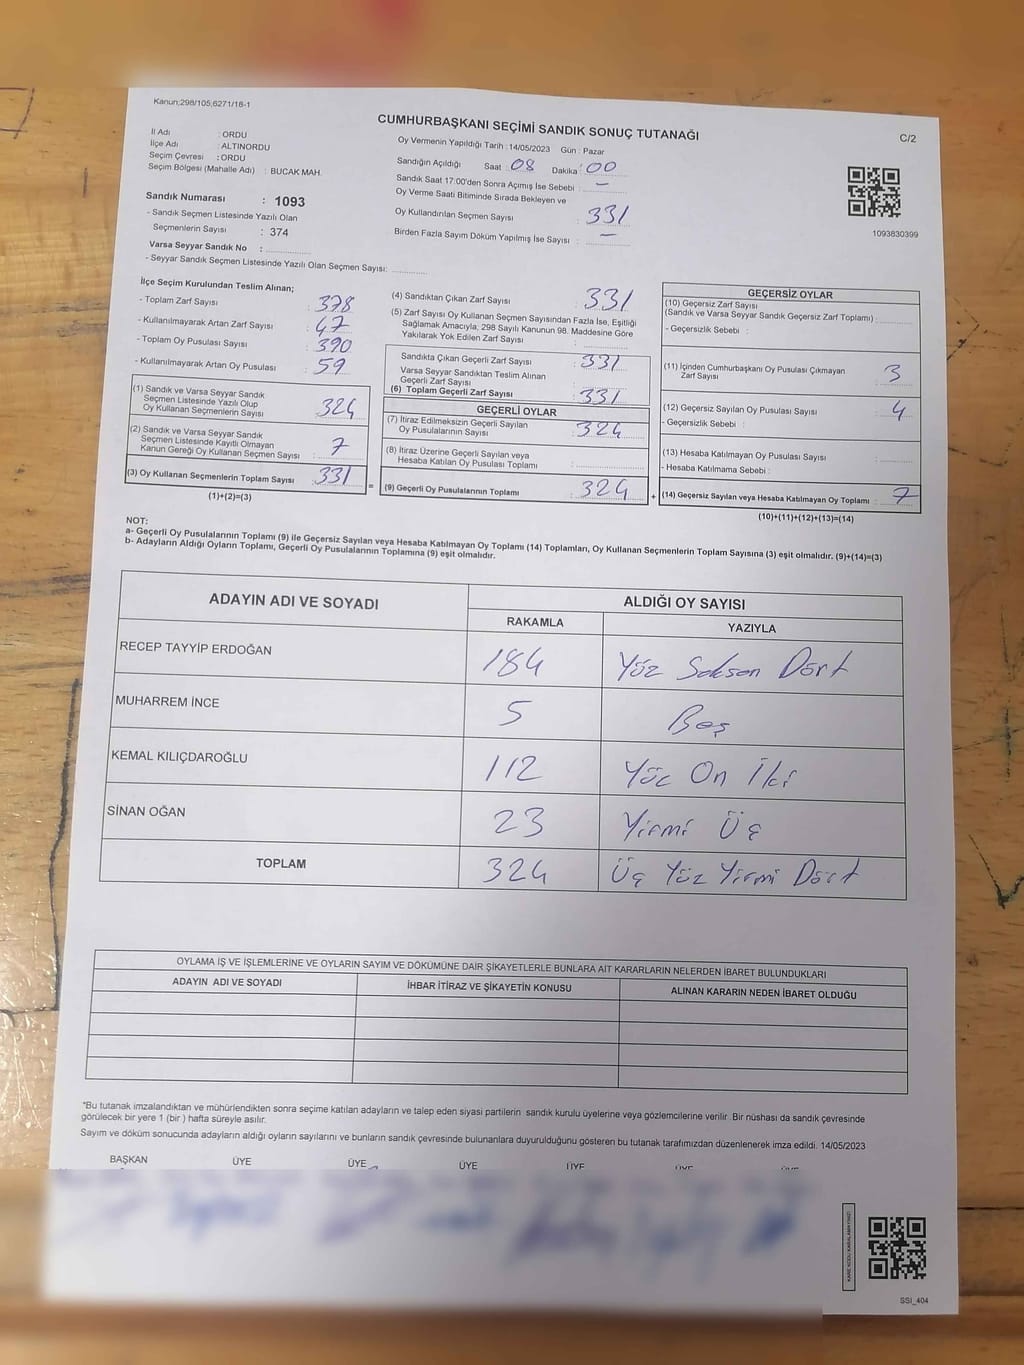 Kanun;298/105,6271/18-1
CUMHURBAŞKANI SEÇİMİ SANDIK SONUÇ TUTANAĞI
C/2
İl Adı : ORDU
İlçe Adı : ALTINORDU
Seçim Çevresi : ORDU
Seçim Bölgesi (Mahalle Adı) : BUCAK MAH.
Sandık Numarası : 1093
- Sandık Seçmen Listesinde Yazılı Olan
Seçmenlerin Sayısı : 374
Varsa Seyyar Sandık No :
- Seyyar Sandık Seçmen Listesinde Yazılı Olan Seçmen Sayısı:
Oy Vermenin Yapıldığı Tarih : 14/05/2023 Gün : Pazar
Sandığın Açıldığı Saat : 08 Dakika : 00
Sandık Saat 17:00'den Sonra Açımış İse Sebebi : –
Oy Verme Saati Bitiminde Sırada Bekleyen ve
Oy Kullandırılan Seçmen Sayısı : 331
Birden Fazla Sayım Döküm Yapılmış İse Sayısı : –
1093830399
İlçe Seçim Kurulundan Teslim Alınan;
- Toplam Zarf Sayısı : 378
- Kullanılmayarak Artan Zarf Sayısı : 47
- Toplam Oy Pusulası Sayısı : 390
- Kullanılmayarak Artan Oy Pusulası : 59
(1) Sandık ve Varsa Seyyar Sandık
Seçmen Listesinde Yazılı Olup
Oy Kullanan Seçmenlerin Sayısı : 324
(2) Sandık ve Varsa Seyyar Sandık
Seçmen Listesinde Kayıtlı Olmayan
Kanun Gereği Oy Kullanan Seçmen Sayısı : 7
(3) Oy Kullanan Seçmenlerin Toplam Sayısı : 331
(1)+(2)=(3)
(4) Sandıktan Çıkan Zarf Sayısı : 331
(5) Zarf Sayısı Oy Kullanan Seçmen Sayısından Fazla İse, Eşitliği
Sağlamak Amacıyla, 298 Sayılı Kanunun 98. Maddesine Göre
Yakılarak Yok Edilen Zarf Sayısı :
Sandıkta Çıkan Geçerli Zarf Sayısı : 331
Varsa Seyyar Sandıktan Teslim Alınan
Geçerli Zarf Sayısı :
(6) Toplam Geçerli Zarf Sayısı : 331
=
GEÇERLİ OYLAR
(7) İtiraz Edilmeksizin Geçerli Sayılan
Oy Pusulalarının Sayısı : 324
(8) İtiraz Üzerine Geçerli Sayılan veya
Hesaba Katılan Oy Pusulası Toplamı :
(9) Geçerli Oy Pusulalarının Toplamı : 324
+
GEÇERSİZ OYLAR
(10) Geçersiz Zarf Sayısı
(Sandık ve Varsa Seyyar Sandık Geçersiz Zarf Toplamı) :
- Geçersizlik Sebebi :
(11) İçinden Cumhurbaşkanı Oy Pusulası Çıkmayan
Zarf Sayısı : 3
(12) Geçersiz Sayılan Oy Pusulası Sayısı : 4
- Geçersizlik Sebebi :
(13) Hesaba Katılmayan Oy Pusulası Sayısı :
- Hesaba Katılmama Sebebi :
(14) Geçersiz Sayılan veya Hesaba Katılmayan Oy Toplamı : 7
(10)+(11)+(12)+(13)=(14)
NOT:
a- Geçerli Oy Pusulalarının Toplamı (9) ile Geçersiz Sayılan veya Hesaba Katılmayan Oy Toplamı (14) Toplamları, Oy Kullanan Seçmenlerin Toplam Sayısına (3) eşit olmalıdır. (9)+(14)=(3)
b- Adayların Aldığı Oyların Toplamı, Geçerli Oy Pusulalarının Toplamına (9) eşit olmalıdır.
ADAYIN ADI VE SOYADI
ALDIĞI OY SAYISI
RAKAMLA YAZIYLA
RECEP TAYYİP ERDOĞAN 184 Yüz Seksen Dört
MUHARREM İNCE 5 Beş
KEMAL KILIÇDAROĞLU 112 Yüz On İki
SİNAN OĞAN 23 Yirmi Üç
TOPLAM 324 Üç Yüz Yirmi Dört
OYLAMA İŞ VE İŞLEMLERİNE VE OYLARIN SAYIM VE DÖKÜMÜNE DAİR ŞİKAYETLERLE BUNLARA AİT KARARLARIN NELERDEN İBARET BULUNDUKLARI
ADAYIN ADI VE SOYADI İHBAR İTİRAZ VE ŞİKAYETİN KONUSU ALINAN KARARIN NEDEN İBARET OLDUĞU
*Bu tutanak imzalandıktan ve mühürlendikten sonra seçime katılan adayların ve talep eden siyasi partilerin sandık kurulu üyelerine veya gözlemcilerine verilir. Bir nüshası da sandık çevresinde
görülecek bir yere 1 (bir) hafta süreyle asılır.
Sayım ve döküm sonucunda adayların aldığı oyların sayılarını ve bunların sandık çevresinde bulunanlara duyurulduğunu gösteren bu tutanak tarafımızdan düzenlenerek imza edildi. 14/05/2023
BAŞKAN ÜYE ÜYE ÜYE ÜYE ÜYE ÜYE
KARE KODU KARALAMAYINIZ!
SSI_404